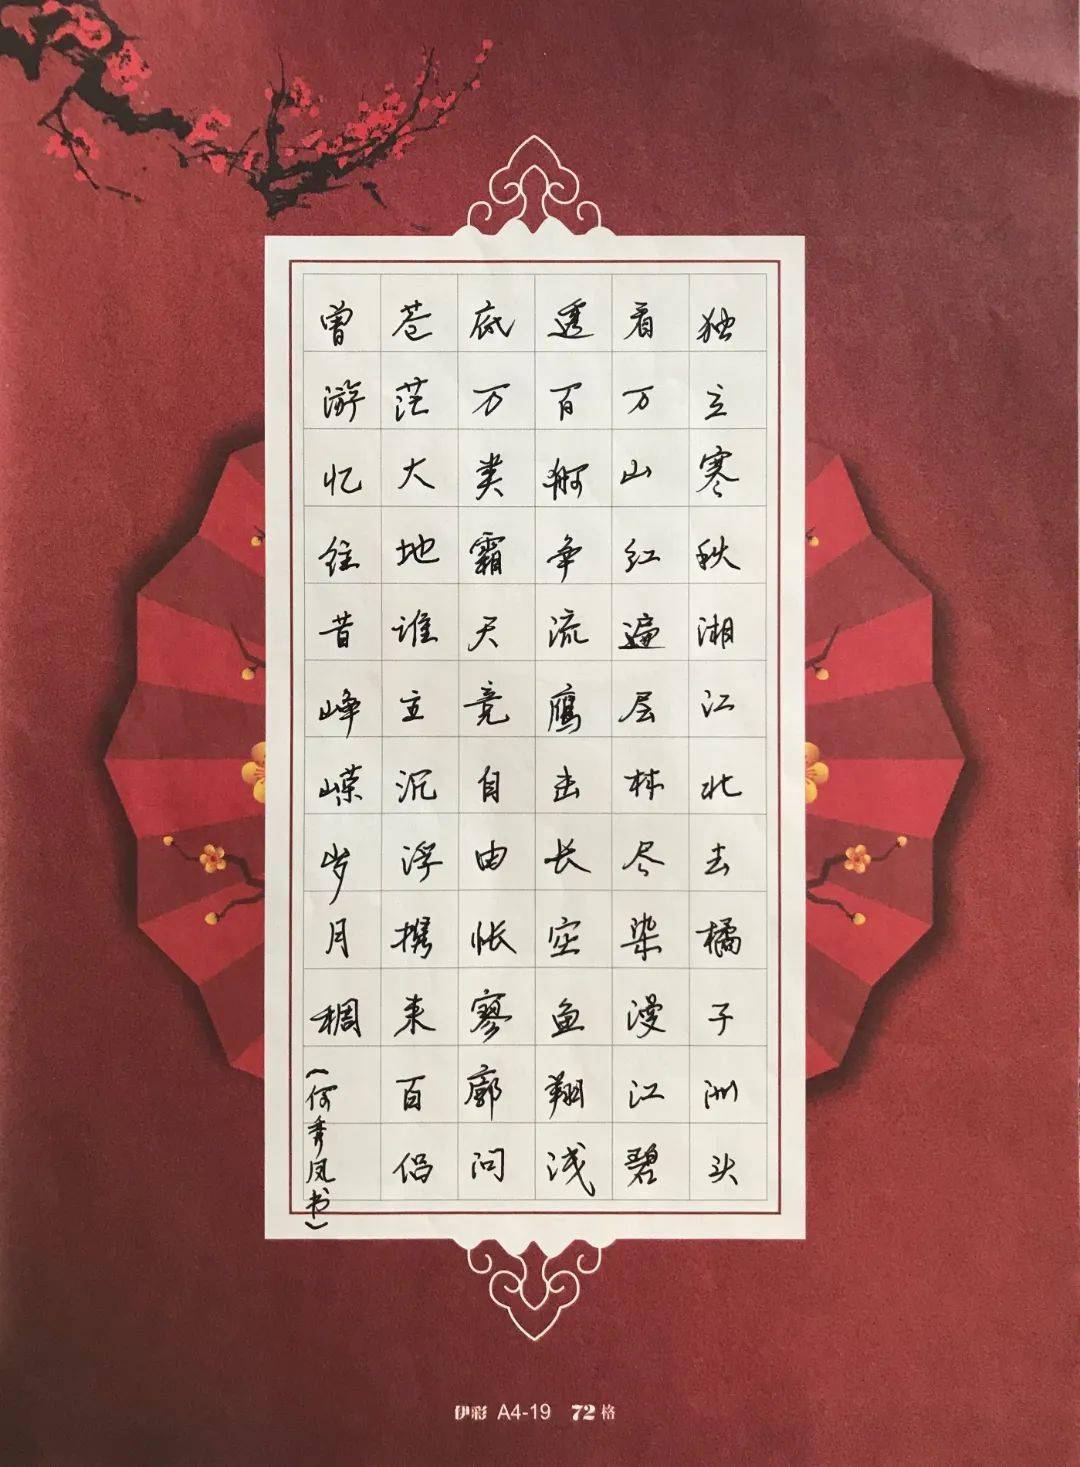 独立寒秋湘江北去橘子洲头
看万山红遍层林尽染漫江碧
透百舸争流鹰击长空鱼翔浅
底万类霜天竞自由怅寥廓问
苍茫大地谁主沉浮携来百侣
曾游忆往昔峥嵘岁月稠
(何秀凤书)
伊彩 A4-19 72格